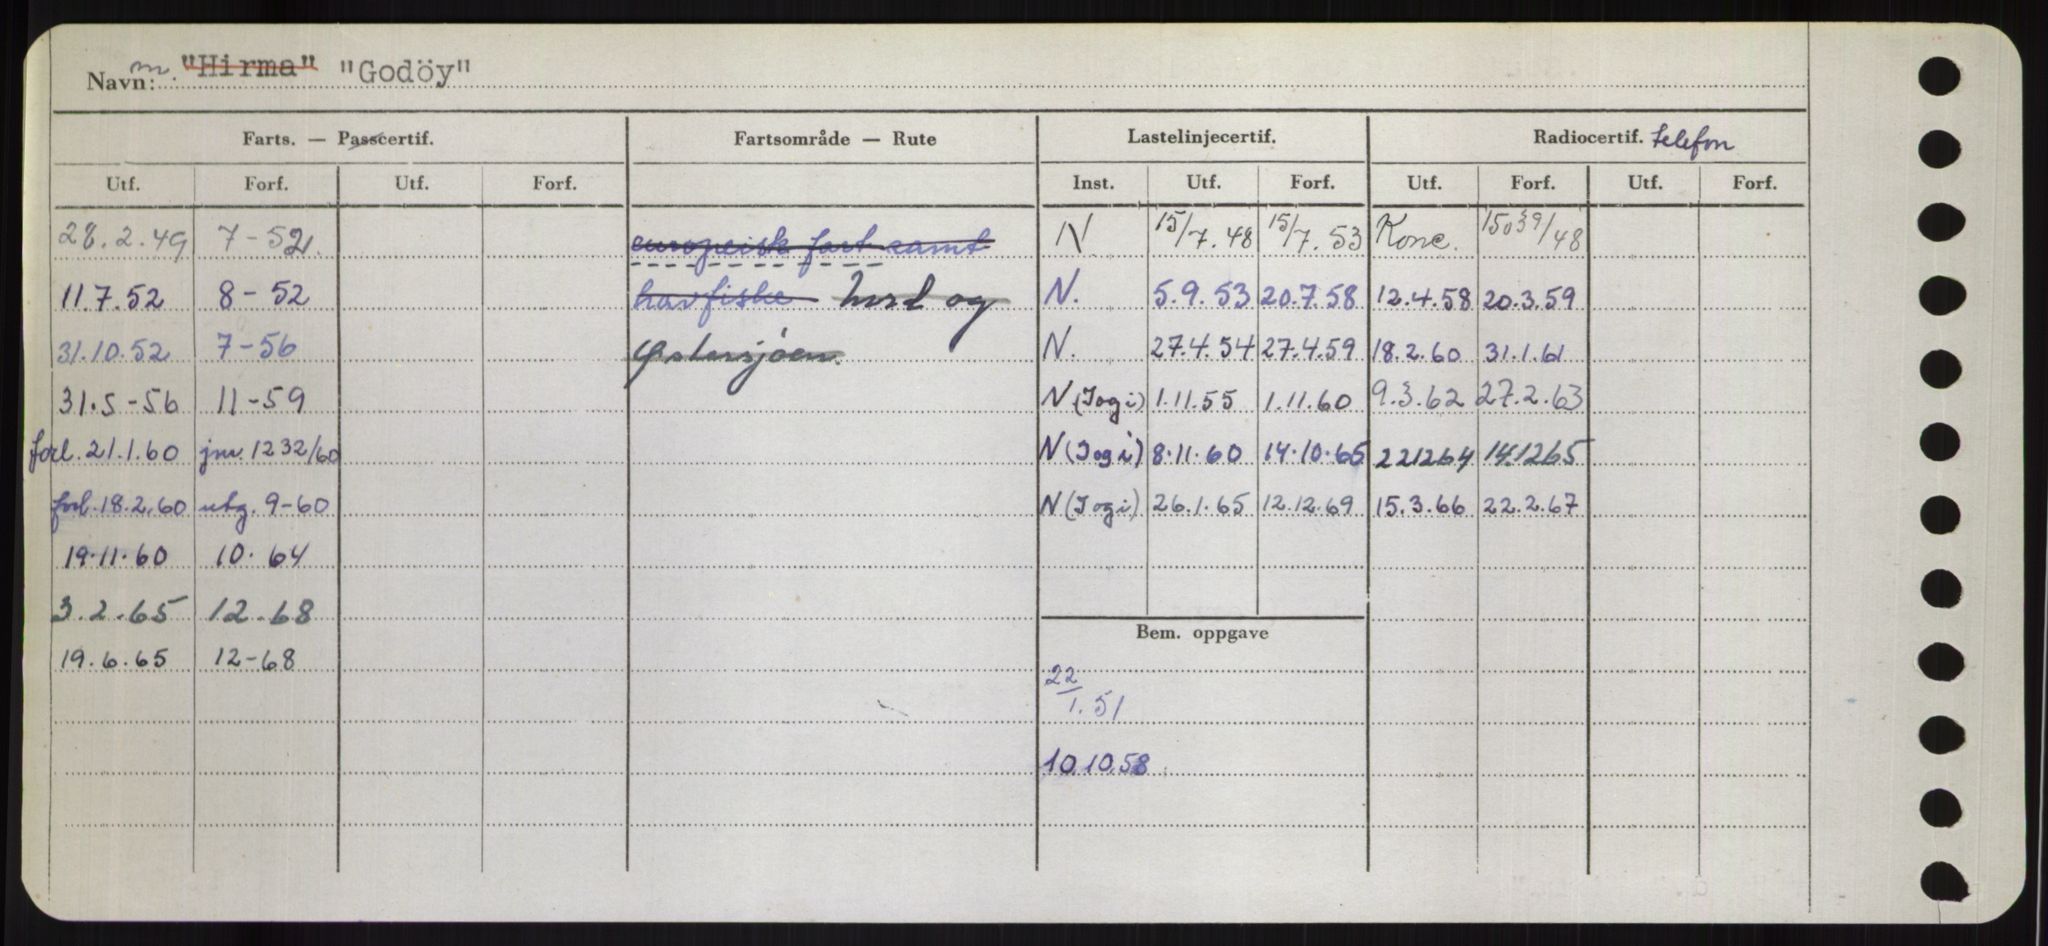 Navn: m. "Hirma" "Godöy"
Farts. — Passcertif. Fartsområde — Rute Lastelinjecertif. Radiocertif. telefon
Utf. Forf. Utf. Forf. Inst. Utf. Forf. Utf. Forf. Utf. Forf.
28.2.49 7-52 europeisk fart samt N 15/7.48 15/7.53 Konc.
11.7.52 8-52 havfiske Nord og N. 5.9.53 20.7.58 12.4.58 20.3.59
31.10.52 7-56 Østersjøen. N. 27.4.54 27.4.59 18.2.60 31.1.61
31.5-56 11-59 N (I og i) 1.11.55 1.11.60 9.3.62 27.2.63
forl. 21.1.60 jnr. 1232/60 N (I og i) 8.11.60 14.10.65 221264 14.1265
forl. 18.2.60 utg. 9-60 N (I og i) 26.1.65 12.12.69 15.3.66 22.2.67
19.11.60 10.64
3.2.65 12-68
Bem. oppgave
19.6.65 12-68
22/1.51
10.10.58